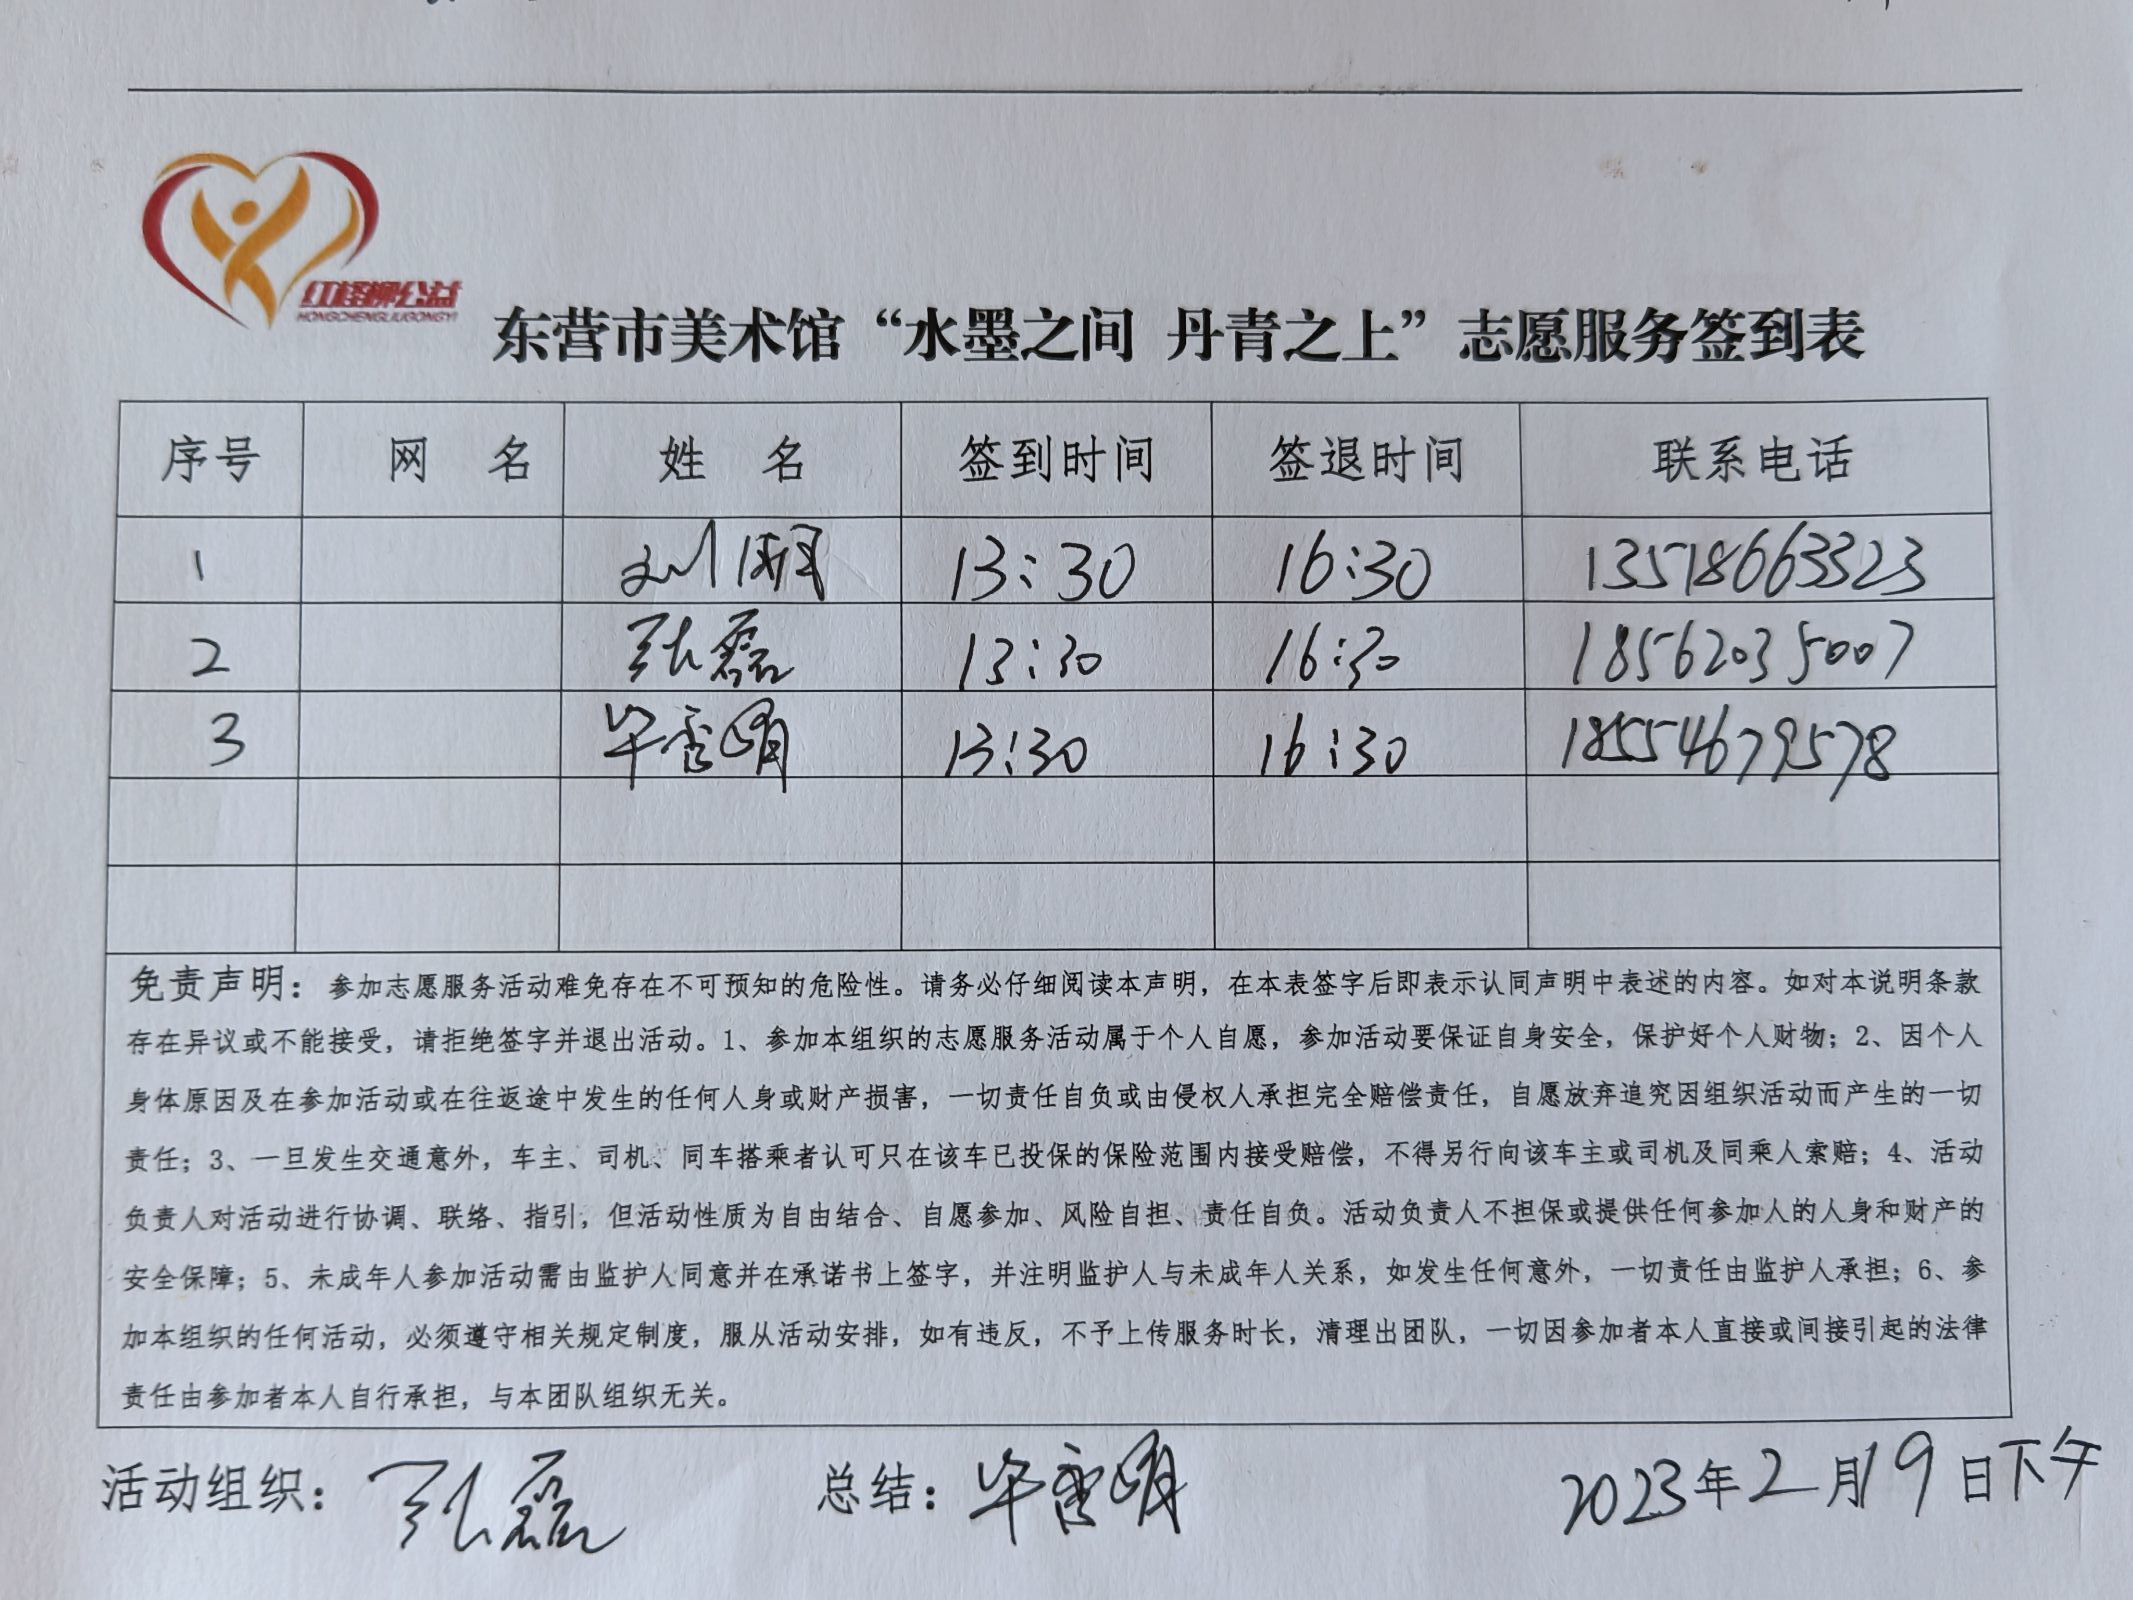 红柽柳公益
HONGCHENGLIUGONGYI
东营市美术馆“水墨之间 丹青之上”志愿服务签到表
序号 网 名 姓 名 签到时间 签退时间 联系电话
1 刘 13:30 16:30 13518663323
2 张磊 13:30 16:30 18562035007
3 毕秀明 13:30 16:30 18554679578
免责声明：参加志愿服务活动难免存在不可预知的危险性。请务必仔细阅读本声明，在本表签字后即表示认同声明中表述的内容。如对本说明条款
存在异议或不能接受，请拒绝签字并退出活动。1、参加本组织的志愿服务活动属于个人自愿，参加活动要保证自身安全，保护好个人财物；2、因个人
身体原因及在参加活动或在往返途中发生的任何人身或财产损害，一切责任自负或由侵权人承担完全赔偿责任，自愿放弃追究因组织活动而产生的一切
责任；3、一旦发生交通意外，车主、司机、同车搭乘者认可只在该车已投保的保险范围内接受赔偿，不得另行向该车主或司机及同乘人索赔；4、活动
负责人对活动进行协调、联络、指引，但活动性质为自由结合、自愿参加、风险自担、责任自负。活动负责人不担保或提供任何参加人的人身和财产的
安全保障；5、未成年人参加活动需由监护人同意并在承诺书上签字，并注明监护人与未成年人关系，如发生任何意外，一切责任由监护人承担；6、参
加本组织的任何活动，必须遵守相关规定制度，服从活动安排，如有违反，不予上传服务时长，清理出团队，一切因参加者本人直接或间接引起的法律
责任由参加者本人自行承担，与本团队组织无关。
活动组织：张磊 总结：毕秀明 2023年2月19日下午